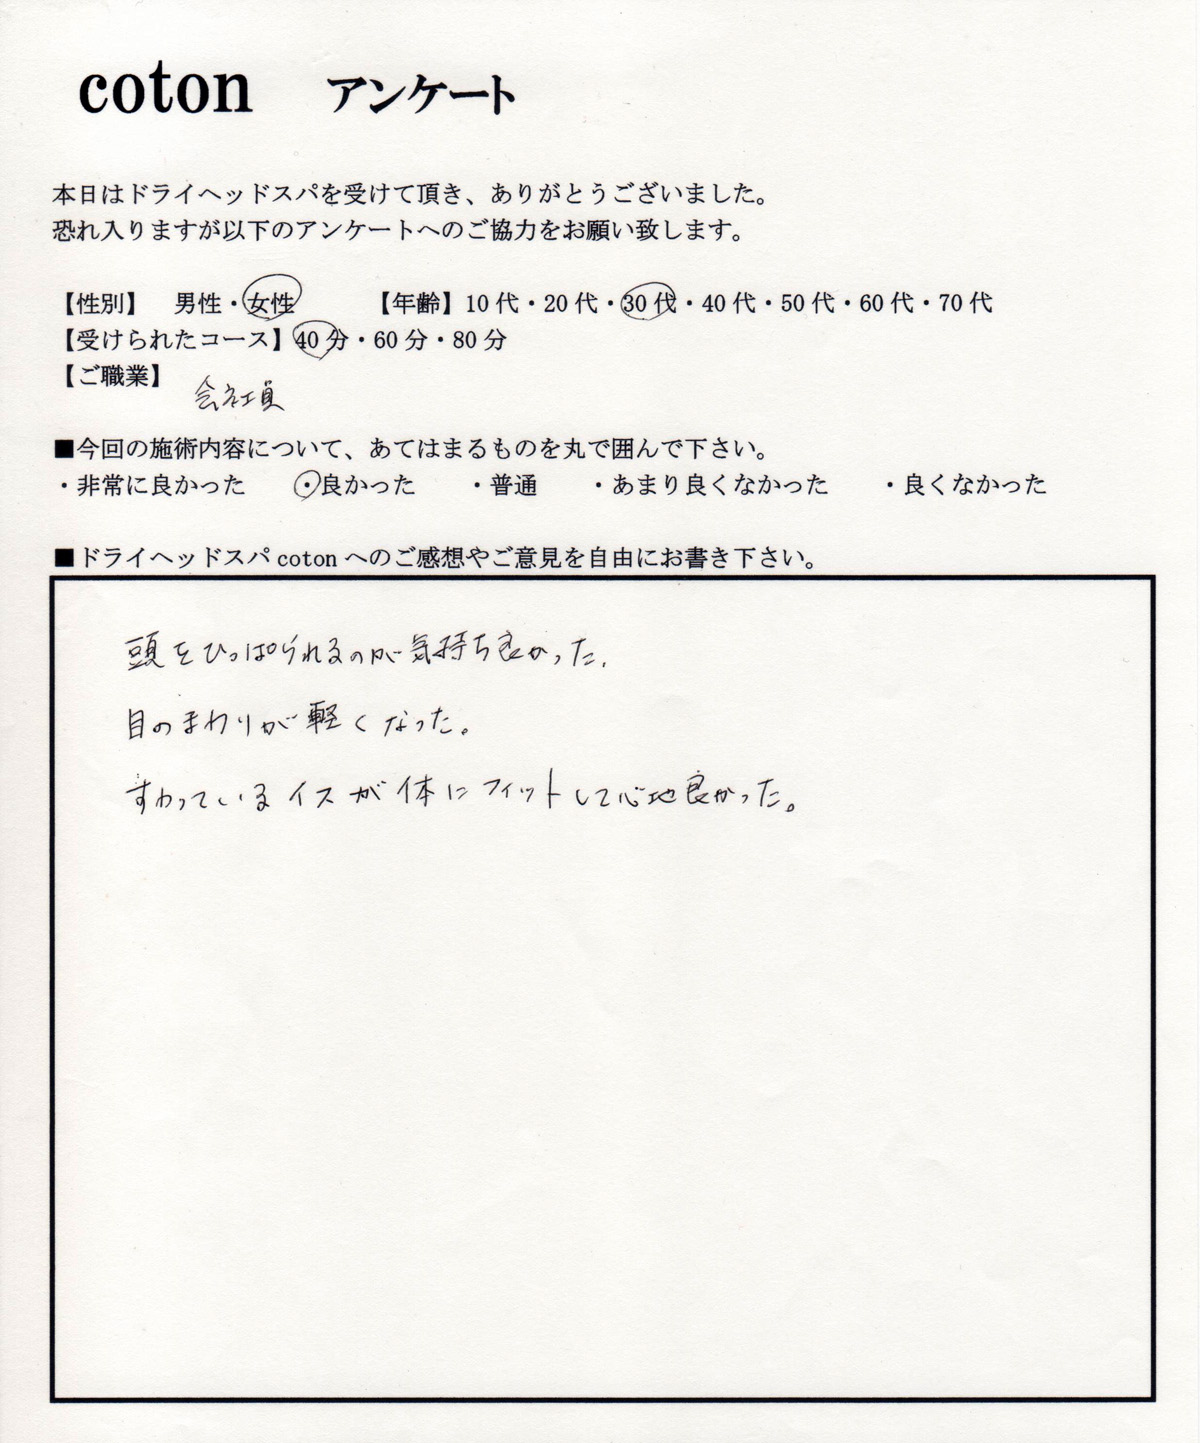 coton アンケート
本日はドライヘッドスパを受けて頂き、ありがとうございました。
恐れ入りますが以下のアンケートへのご協力をお願い致します。
【性別】 男性・女性 【年齢】10代・20代・30代・40代・50代・60代・70代
【受けられたコース】40分・60分・80分
【ご職業】
会社員
■今回の施術内容について、あてはまるものを丸で囲んで下さい。
・非常に良かった ・良かった ・普通 ・あまり良くなかった ・良くなかった
■ドライヘッドスパcotonへのご感想やご意見を自由にお書き下さい。
頭をひっぱられるのが気持ち良かった.
目のまわりが軽くなった。
すわっているイスが体にフィットして心地良かった。